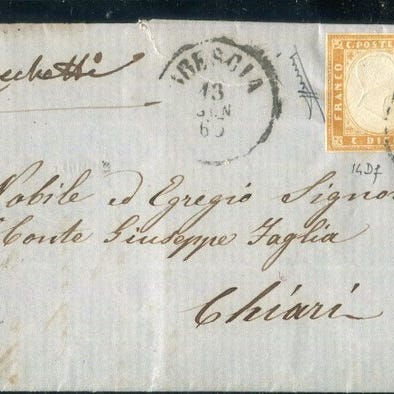 BRESCIA
13
GEN
60
C. POSTE
FRANCO
C. DI
14D7
Nobile ed Egregio Signor
Conte Giuseppe Faglia
Chiari